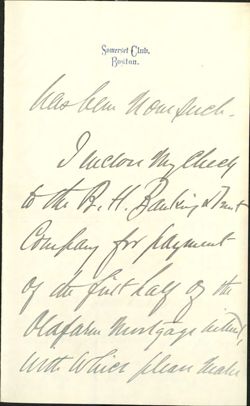 Somerset Club,
Boston.
has been none such.
I enclose my check
to the B. H. Banking & Trust
Company for payment
of the first half of the
mortgage
with which please make